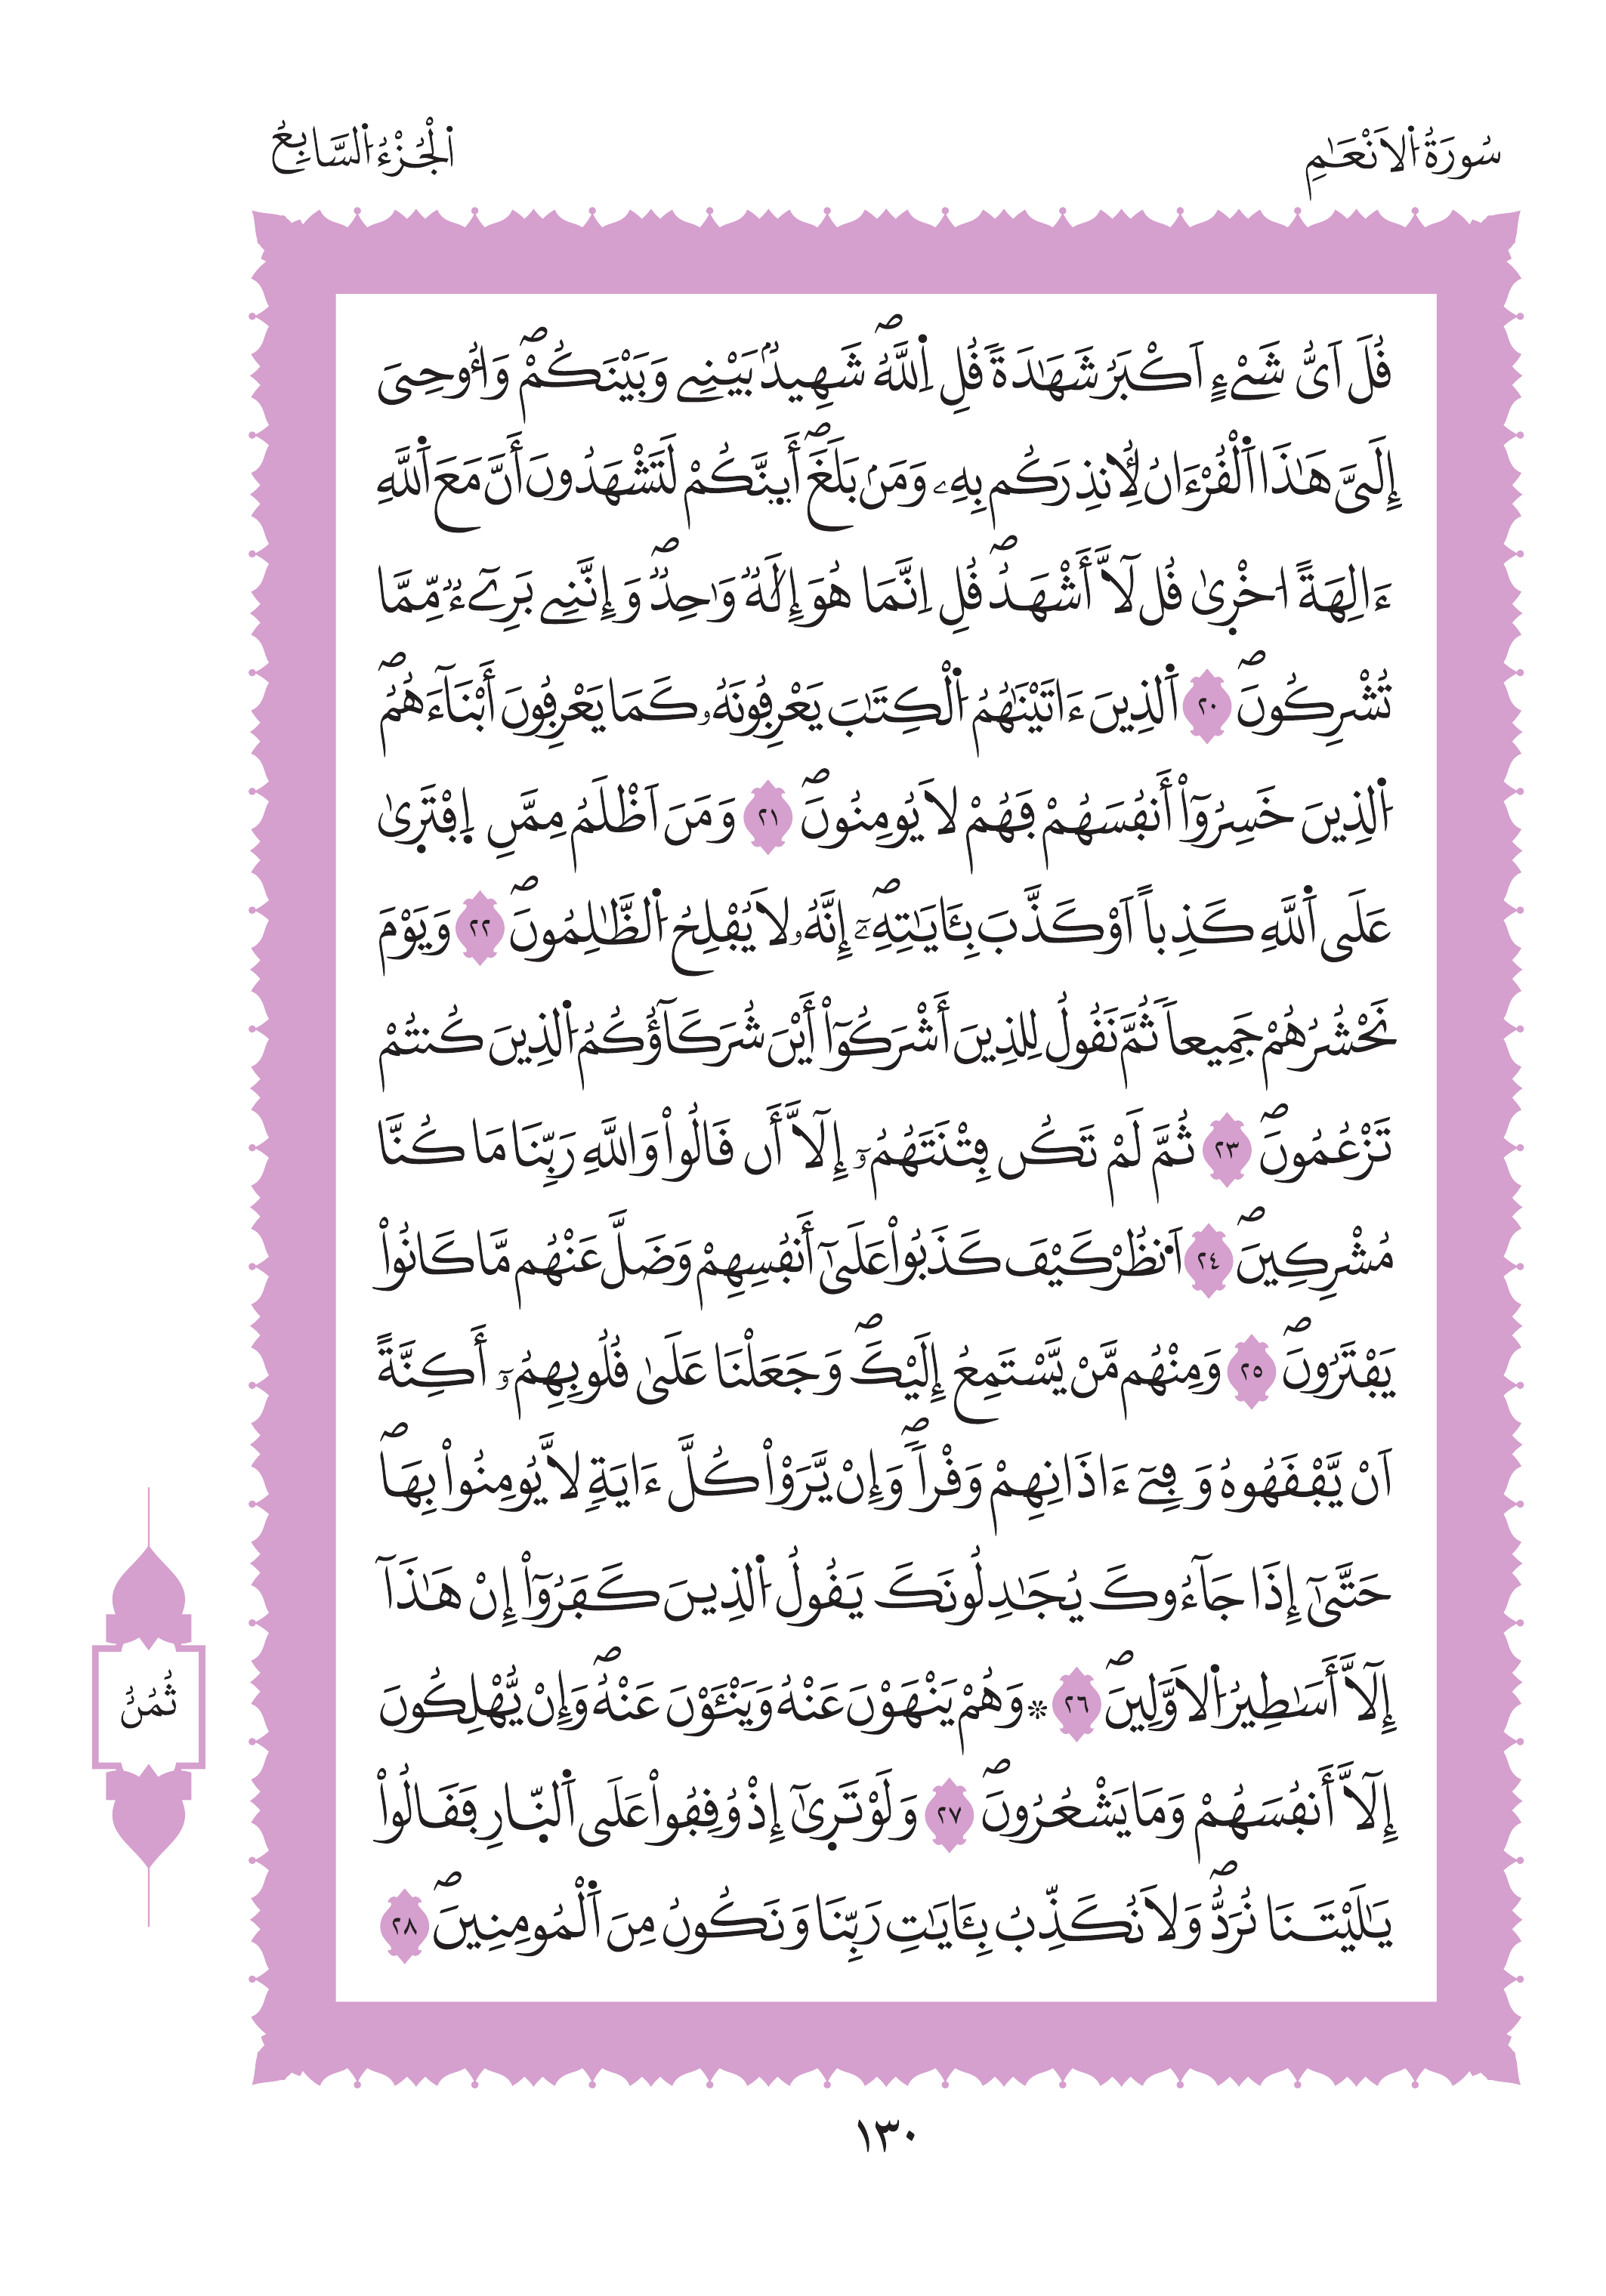 سُورَةُ اُ۬لَانْعَٰمِ
اُ۬لْجُزْءُ اُ۬لسَّابِعُ
قُلَ اَيُّ شَےْءٍ اَكْبَرُ شَهَٰدَةٗ قُلِ اِ۬للَّهُۖ شَهِيدُۢ بَيْنِے وَبَيْنَكُمْۖ وَأُوحِيَ
إِلَيَّ هَٰذَا اَ۬لْقُرْءَانُ لِأُنذِرَكُم بِهِۦ وَمَنۢ بَلَغَۖ أَئِنَّكُمْ لَتَشْهَدُونَ أَنَّ مَعَ اَ۬للَّهِ
ءَالِهَةً ا۟خْر۪يٰ قُل لَّآ أَشْهَدُۖ قُلِ اِنَّمَا هُوَ إِلَٰهٞ وَٰحِدٞۖ وَإِنَّنِے بَرِےٓءٞ مِّمَّا
تُشْرِكُونَۖ ٢٠ اَ۬لذِينَ ءَاتَيْنَٰهُمُ اُ۬لْكِتَٰبَ يَعْرِفُونَهُۥ كَمَا يَعْرِفُونَ أَبْنَآءَهُمُۖ
اُ۬لذِينَ خَسِرُوٓاْ أَنفُسَهُمْ فَهُمْ لَا يُومِنُونَۖ ٢١ وَمَنَ اَظْلَمُ مِمَّنِ اِ۪فْتَر۪يٰ
عَلَي اَ۬للَّهِ كَذِباً اَوْ كَذَّبَ بِـَٔايَٰتِهِۦٓۖ إِنَّهُۥ لَا يُفْلِحُ اُ۬لظَّٰلِمُونَۖ ٢٢ وَيَوْمَ
نَحْشُرُهُمْ جَمِيعاٗ ثُمَّ نَقُولُ لِلذِينَ أَشْرَكُوٓاْ أَيْنَ شُرَكَآؤُكُمُ اُ۬لذِينَ كُنتُمْ
تَزْعُمُونَۖ ٢٣ ثُمَّ لَمْ تَكُن فِتْنَتَهُمُۥٓ إِلَّآ أَن قَالُواْ وَاللَّهِ رَبِّنَا مَا كُنَّا
مُشْرِكِينَۖ ٢٤ اَ۟نظُرْ كَيْفَ كَذَبُواْ عَلَيٰٓ أَنفُسِهِمْ وَضَلَّ عَنْهُم مَّا كَانُواْ
يَفْتَرُونَۖ ٢٥ وَمِنْهُم مَّنْ يَّسْتَمِعُ إِلَيْكَۖ وَجَعَلْنَا عَلَيٰ قُلُوبِهِمُۥٓ أَكِنَّةً
اَنْ يَّفْقَهُوهُ وَفِےٓ ءَاذَانِهِمْ وَقْراٗۖ وَإِنْ يَّرَوْاْ كُلَّ ءَايَةٖ لَّا يُومِنُواْ بِهَاۖ
حَتَّيٰٓ إِذَا جَآءُوكَ يُجَٰدِلُونَكَ يَقُولُ اُ۬لذِينَ كَفَرُوٓاْ إِنْ هَٰذَآ
إِلَّآ أَسَٰطِيرُ اُ۬لَاوَّلِينَۖ ٢٦ ۞ وَهُمْ يَنْهَوْنَ عَنْهُ وَيَنْـَٔوْنَ عَنْهُۖ وَإِنْ يُّهْلِكُونَ
إِلَّآ أَنفُسَهُمْ وَمَا يَشْعُرُونَۖ ٢٧ وَلَوْ تَر۪يٰٓ إِذْ وُقِفُواْ عَلَي اَ۬لنّ۪ارِ فَقَالُواْ
يَٰلَيْتَنَا نُرَدُّۖ وَلَا نُكَذِّبُ بِـَٔايَٰتِ رَبِّنَا وَنَكُونُ مِنَ اَ۬لْمُومِنِينَۖ ٢٨
ثُمُنُ
١٣٠